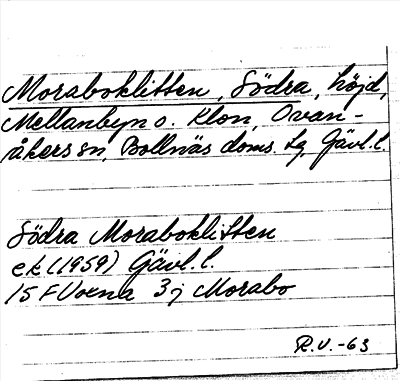 Moraboklitten, Södra, höjd,
Mellanbyn o. Klon, Ovan-
åkers sn, Bollnäs doms. lg, Gävl. l.
Södra Moraboklitten
ek (1959) Gävl. l.
15 F Voxna 3j Morabo
R.V. -63